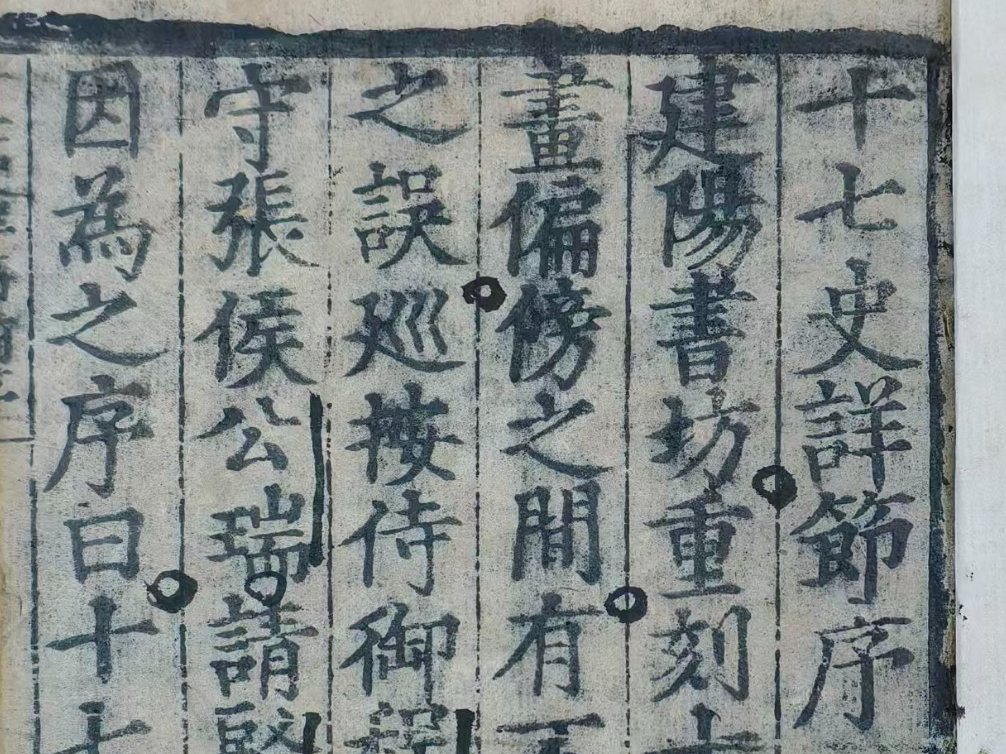 十七史詳節序
建陽書坊重刻
畫偏傍之間有
之誤巡按侍御
守張侯公瑞請
因為之序曰十七